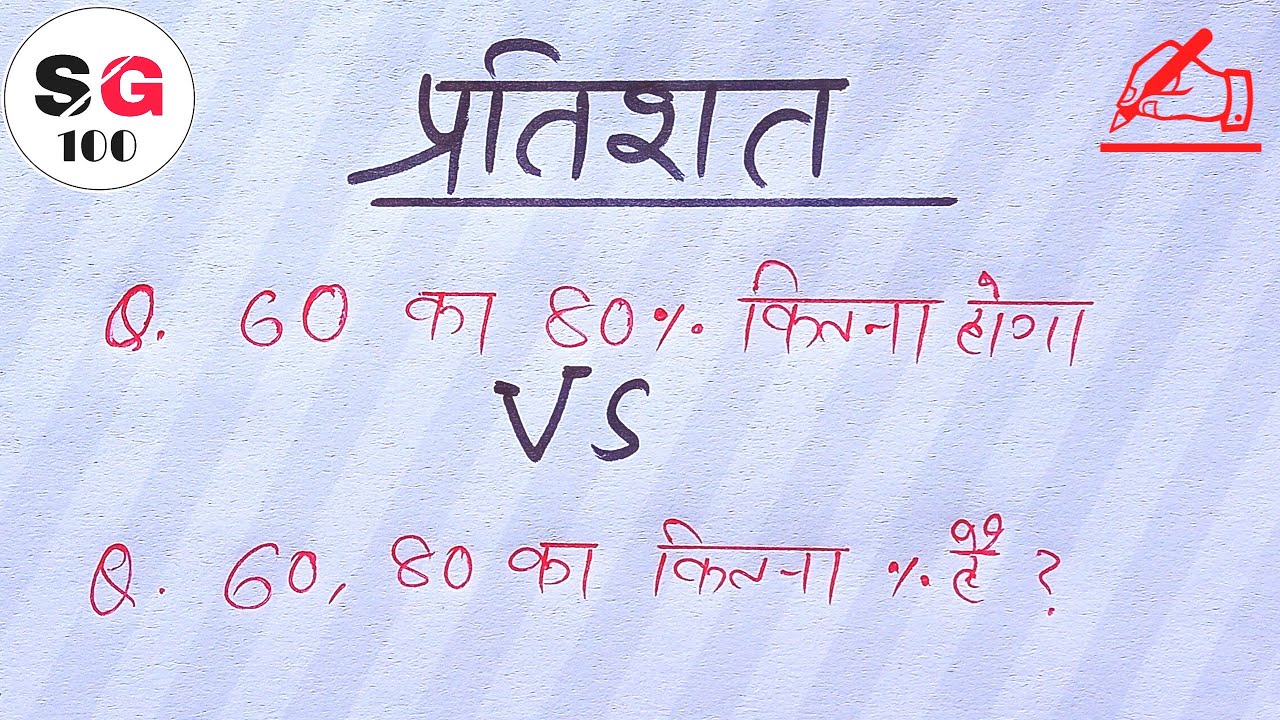 SG
100
प्रतिशत
Q. 60 का 80% कितना होगा
VS
Q. 60, 80 का कितना % है ?